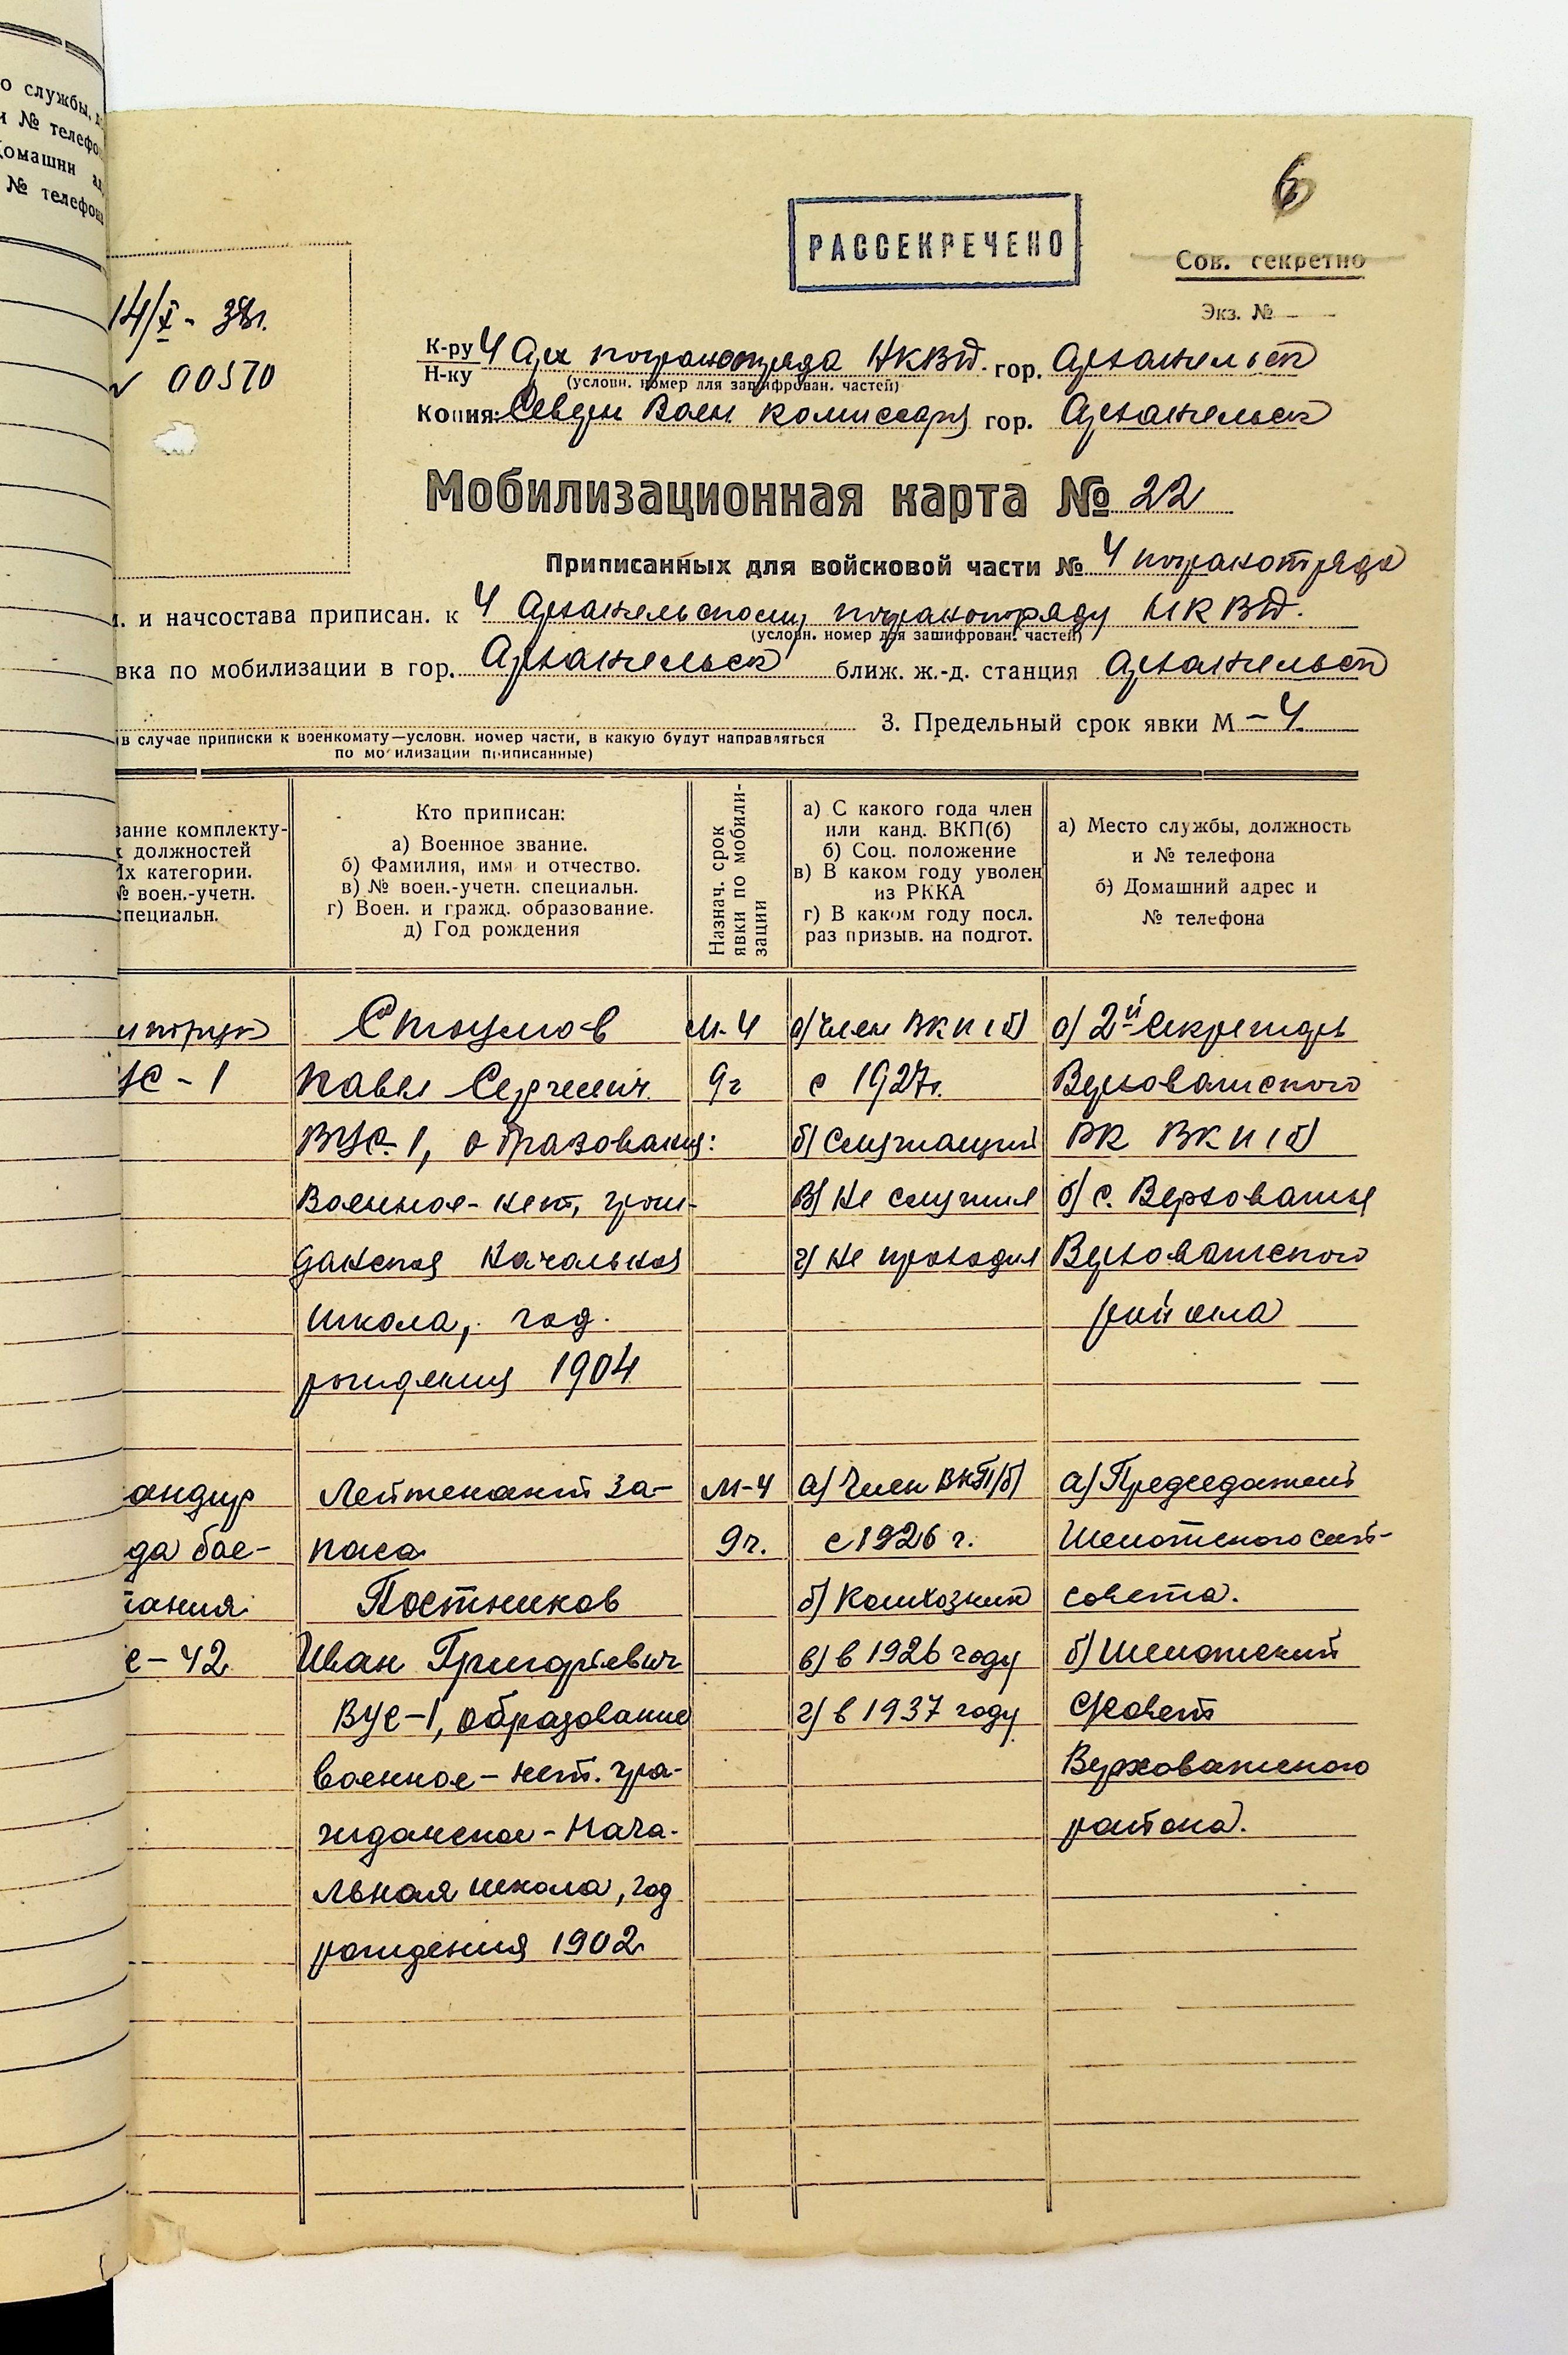 о службы,
и № телефо
Домашни ад
№ телефона
6
РАССЕКРЕЧЕНО
Сов. секретно
Экз. №
14/X - 38г.
00570
К-ру
Н-ку
4 Арх погранотряда НКВД. гор. Архангельск
(условн. номер для зашифрован. частей)
Копия: Воен комиссару гор. Архангельск
Мобилизационная карта № 22
Приписанных для войсковой части № 4 погранотряда
и начсостава приписан. к 4 Архангельскому погранотряду НКВД.
(условн. номер для зашифрован. частей)
вка по мобилизации в гор. Архангельск ближ. ж.-д. станция Архангельск
3. Предельный срок явки М-4
(в случае приписки к военкомату—условн. номер части, в какую будут направляться
по мобилизации приписанные)
вание комплекту-
х должностей
их категории.
№ воен.-учетн.
специальн.
Кто приписан:
а) Военное звание.
б) Фамилия, имя и отчество.
в) № воен.-учетн. специальн.
г) Воен. и гражд. образование.
д) Год рождения
Назнач. срок
явки по мобили-
зации
а) С какого года член
или канд. ВКП(б)
б) Соц. положение
в) В каком году уволен
из РККА
г) В каком году посл.
раз призыв. на подгот.
а) Место службы, должность
и № телефона
б) Домашний адрес и
№ телефона
литрук
УС - 1
Павел Сергеевич
ВУС-1, образование:
Военное - нет, граж-
данская Начальная
школа, год
рождения 1904
М-4
9г
а) Член ВКП(б)
с 1927г.
б) Служащий
в) Не служил
г) Не проходил
а) 2й Секретарь
Верховажского
РК ВКП(б)
б) с. Верховажье
Верховажского
района
андир
да бое-
тания
с-42
Лейтенант за-
паса
Постников
Иван Григорьевич
ВУС-1, образование
военное - нет. гра-
жданское - Нача-
льная школа, год
рождения 1902
М-4
9г.
а) Член ВКП(б)
с 1926 г.
б) Колхозник
в) в 1926 году
г) в 1937 году
а) Председатель
Шелотского сель-
совета.
б) Шелотский
с/совет
Верховажского
района.